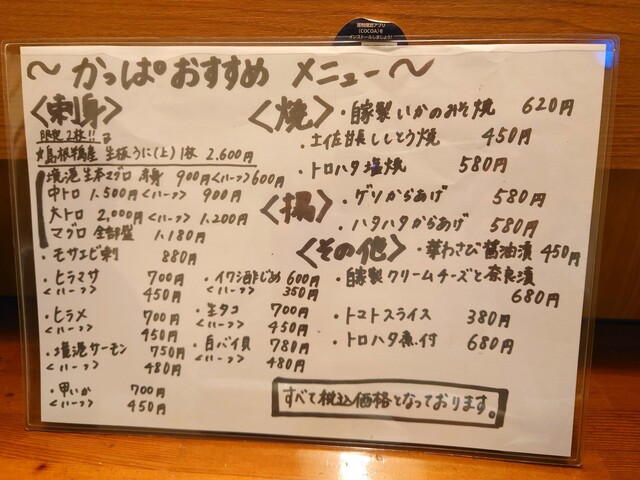 接触確認アプリ
(COCOA)を
インストールしましょう!
～かっぱおすすめ メニュー～
<刺身>
限定2枚!!
島根半島産 生板うに(上)1枚 2,600円
境港生本マグロ 赤身 900円<ハーフ>600円
中トロ 1,500円<ハーフ> 900円
大トロ 2,000円<ハーフ> 1,200円
マグロ 全部盛 1,180円
・モサエビ刺 880円
・ヒラマサ 700円
<ハーフ> 450円
・ヒラメ 700円
<ハーフ> 450円
・境港サーモン 750円
<ハーフ> 480円
・甲いか 700円
<ハーフ> 450円
・イワシ酢じめ 600円
<ハーフ> 350円
・生タコ 700円
<ハーフ> 450円
・白バイ貝 780円
<ハーフ> 480円
<焼>・自家製いかのみそ焼 620円
・土佐甘長ししとう焼 450円
・トロハタ塩焼 580円
<揚>・ゲソからあげ 580円
・ハタハタからあげ 580円
<その他>・葉わさび醤油漬 450円
・自家製クリームチーズと奈良漬
680円
・トマトスライス 380円
・トロハタ煮付 680円
すべて税込価格となっております。